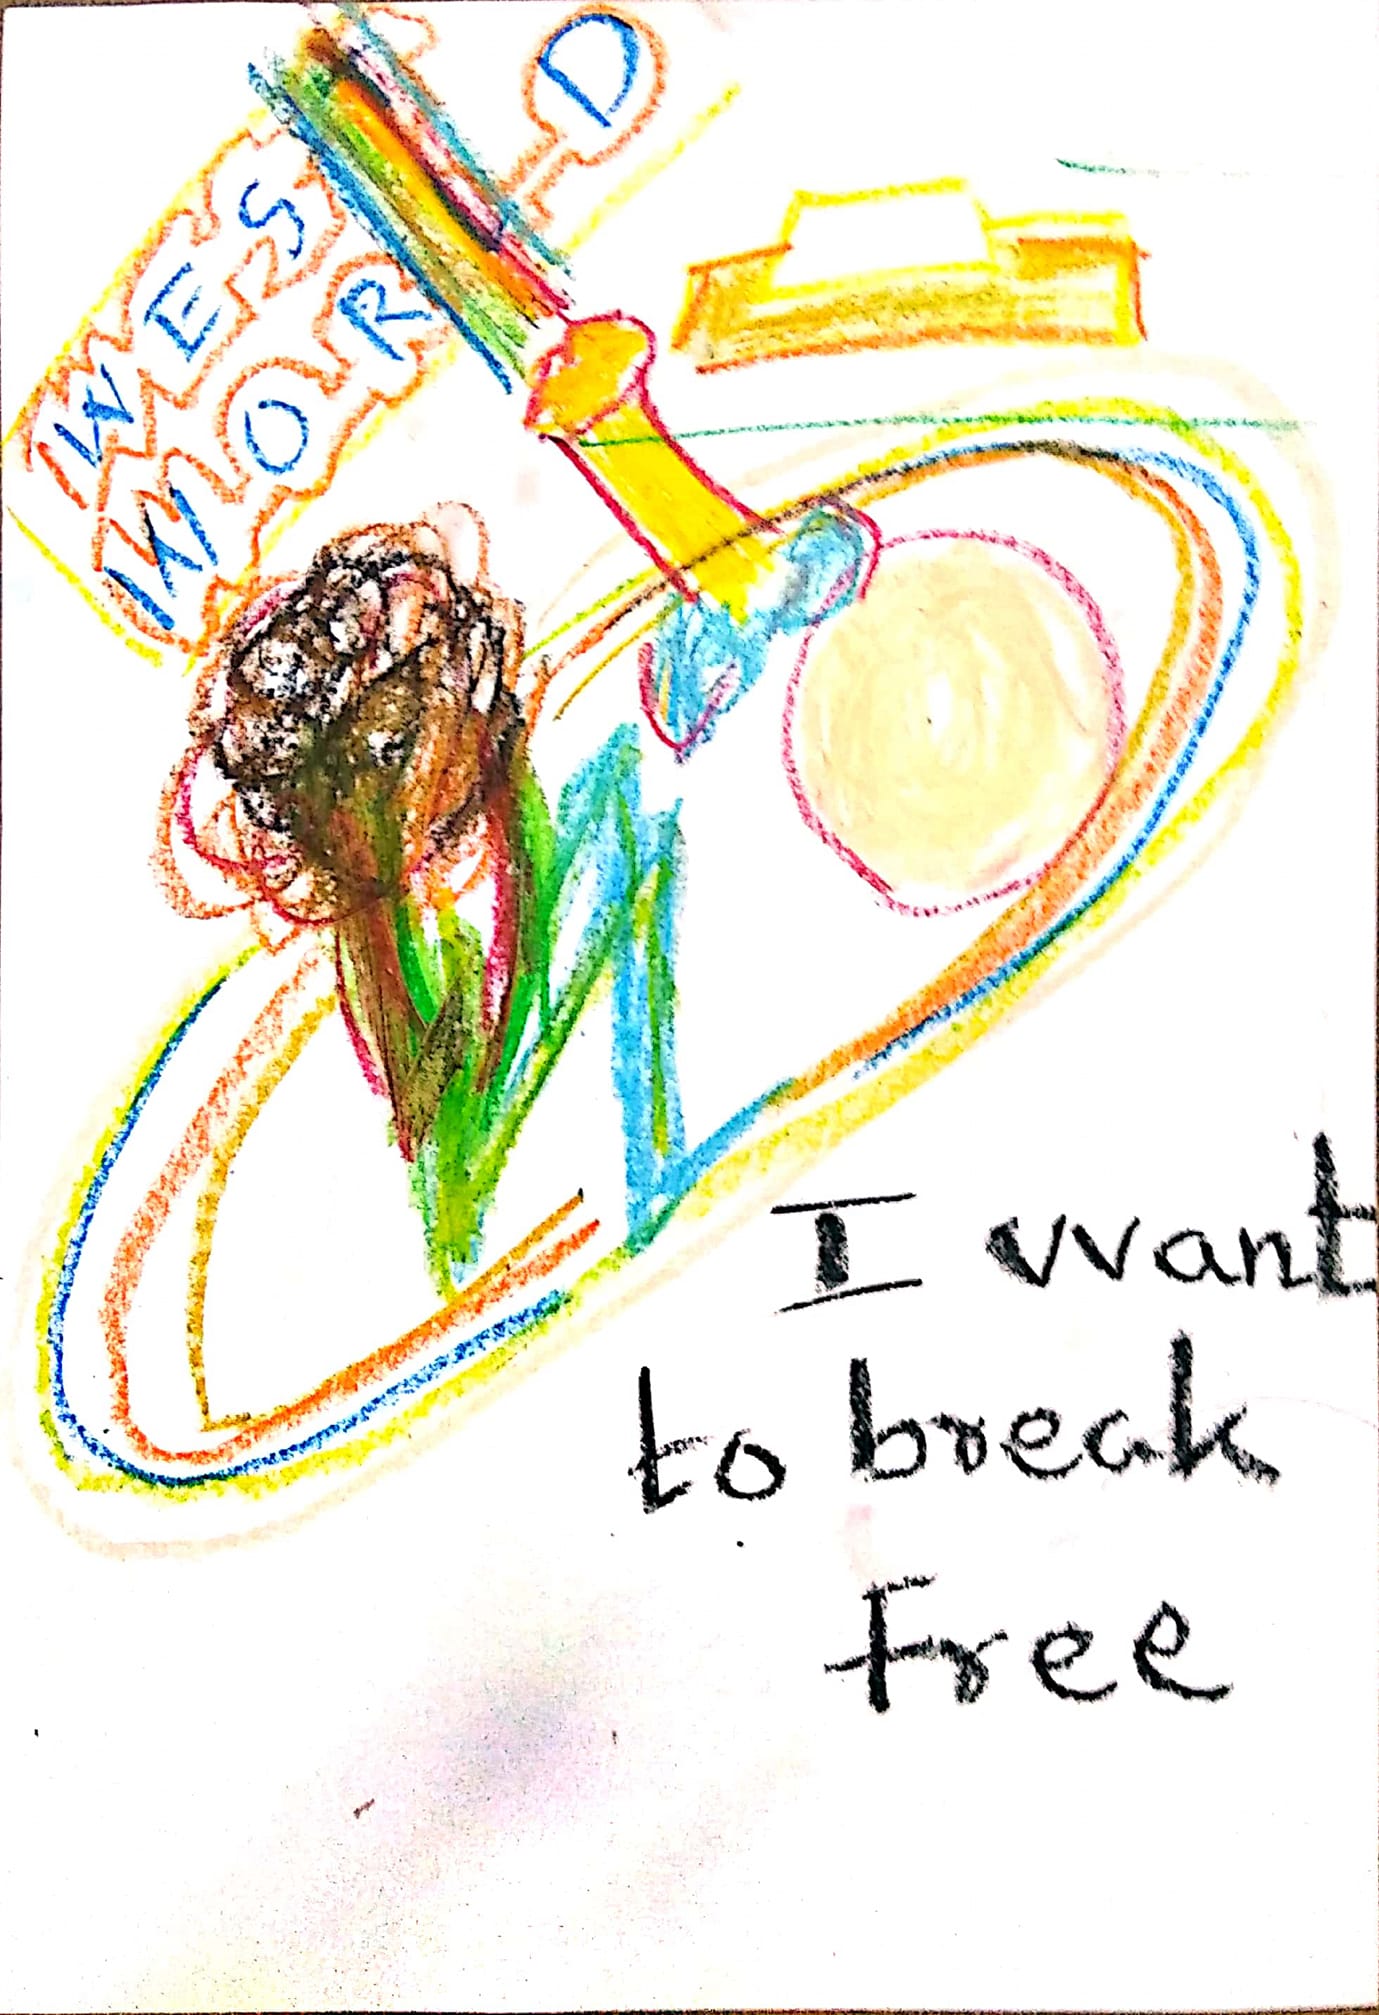 WES
WOR D
I want
to break
Free